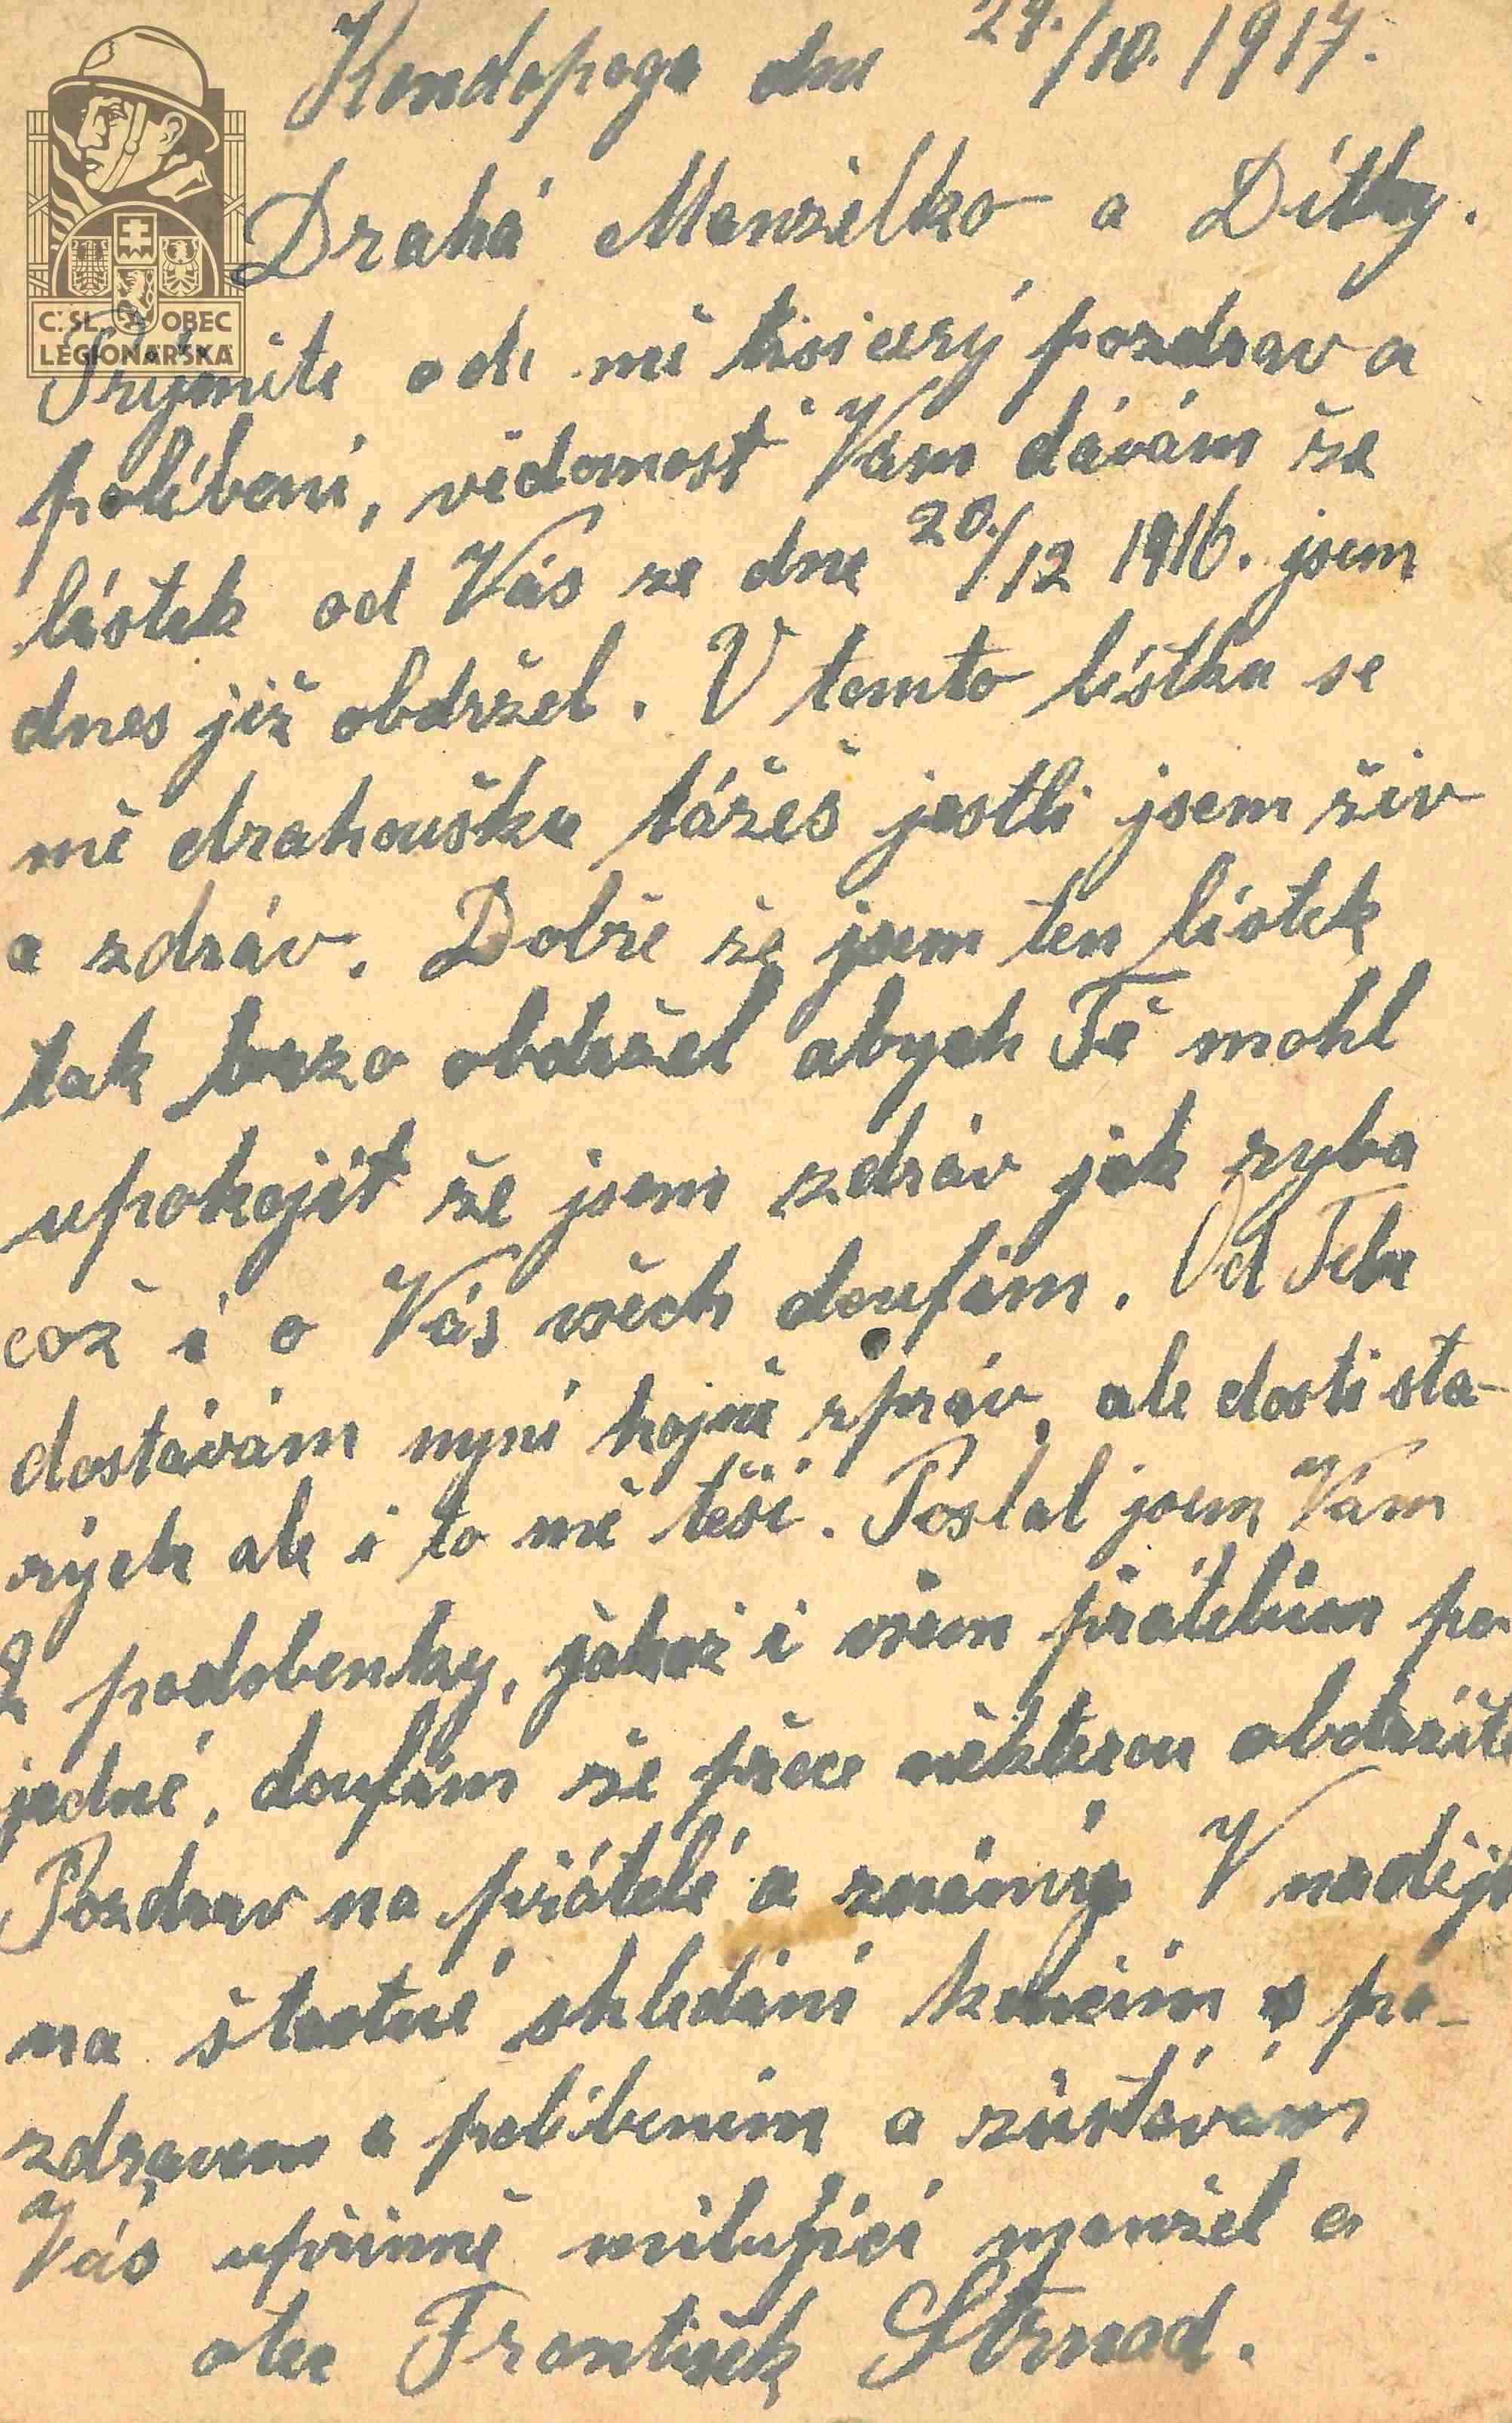 Kondopoga dne 24./10. 1917.
Drahá Manželko a Dítky.
C.SL. OBEC
LEGIONÁŘSKÁ
Prijmite ode mě tisícerý pozdrav a
políbení, vědomosť Vám dávám že
lístek od Vás ze dne 20./12 1916. jsem
dnes již obdržel. V tomto lístku se
mě drahoušku tážeš jestli jsem živ
a zdráv. Dobře že jsem ten lístek
tak brzo obdržel abych Tě mohl
upokojit že jsem zdráv jak ryba
což i o Vás všech doufám. Od Tebe
dostávám nyní hojně zpráv, ale dosti sta-
rých ale i to mě těší. Poslal jsem Vám
2 podobenky, jakož i všem přátelům po
jedné, doufám že přece některou obdržíte
Pozdrav na přátelé a známý V naději
na štastné shledání končím s po-
zdravem a políbením a zůstávám
Vás upřímně milující manžel a
otec František Strnad.